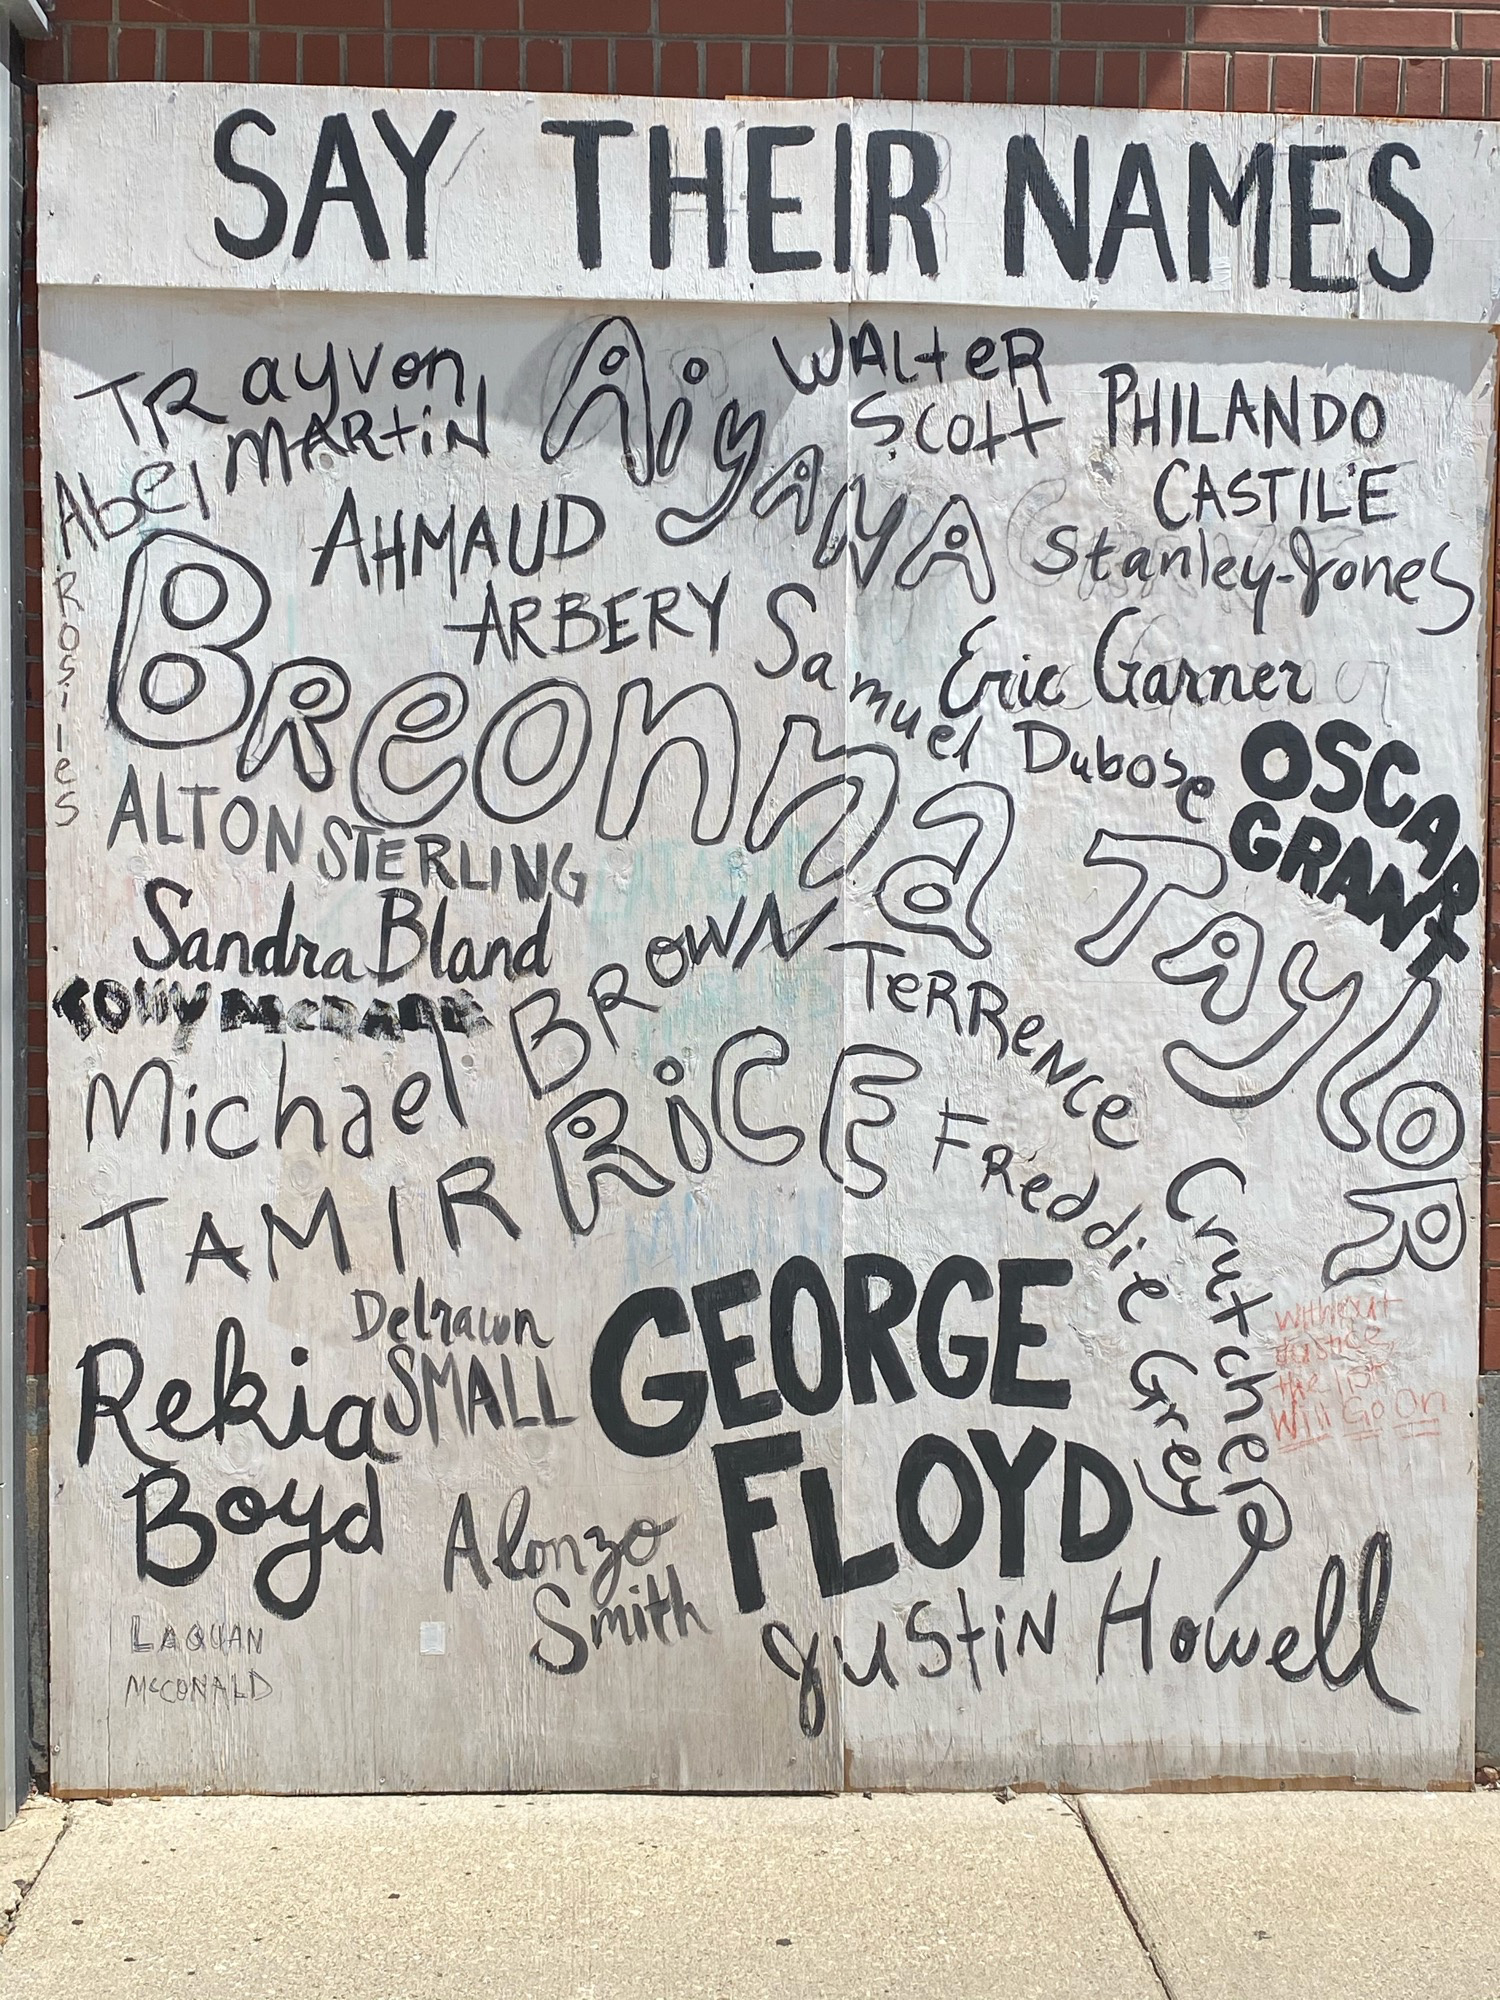 SAY THEIR NAMES
TRayvon
MARtiN
AiyANA
WALteR
Scott
PHILANDO
CASTILE
Stanley-Jones
Abel
Rosiles
AHMAUD
ARBERY
Samuel Dubose
Eric Garner
BReonna
TAylOR
OSCAR
GRANT
ALTON STERLING
Sandra Bland
TONY
Michael BROWN
TeRRence
Crutcher
TAMIR RiCE
FReddie Grey
Delrawn
SMALL
GEORGE
FLOYD
without
justice,
the list
Will Go On
Rekia
Boyd
Alonzo
Smith
JustiN Howell
LAQUAN
McCONALD